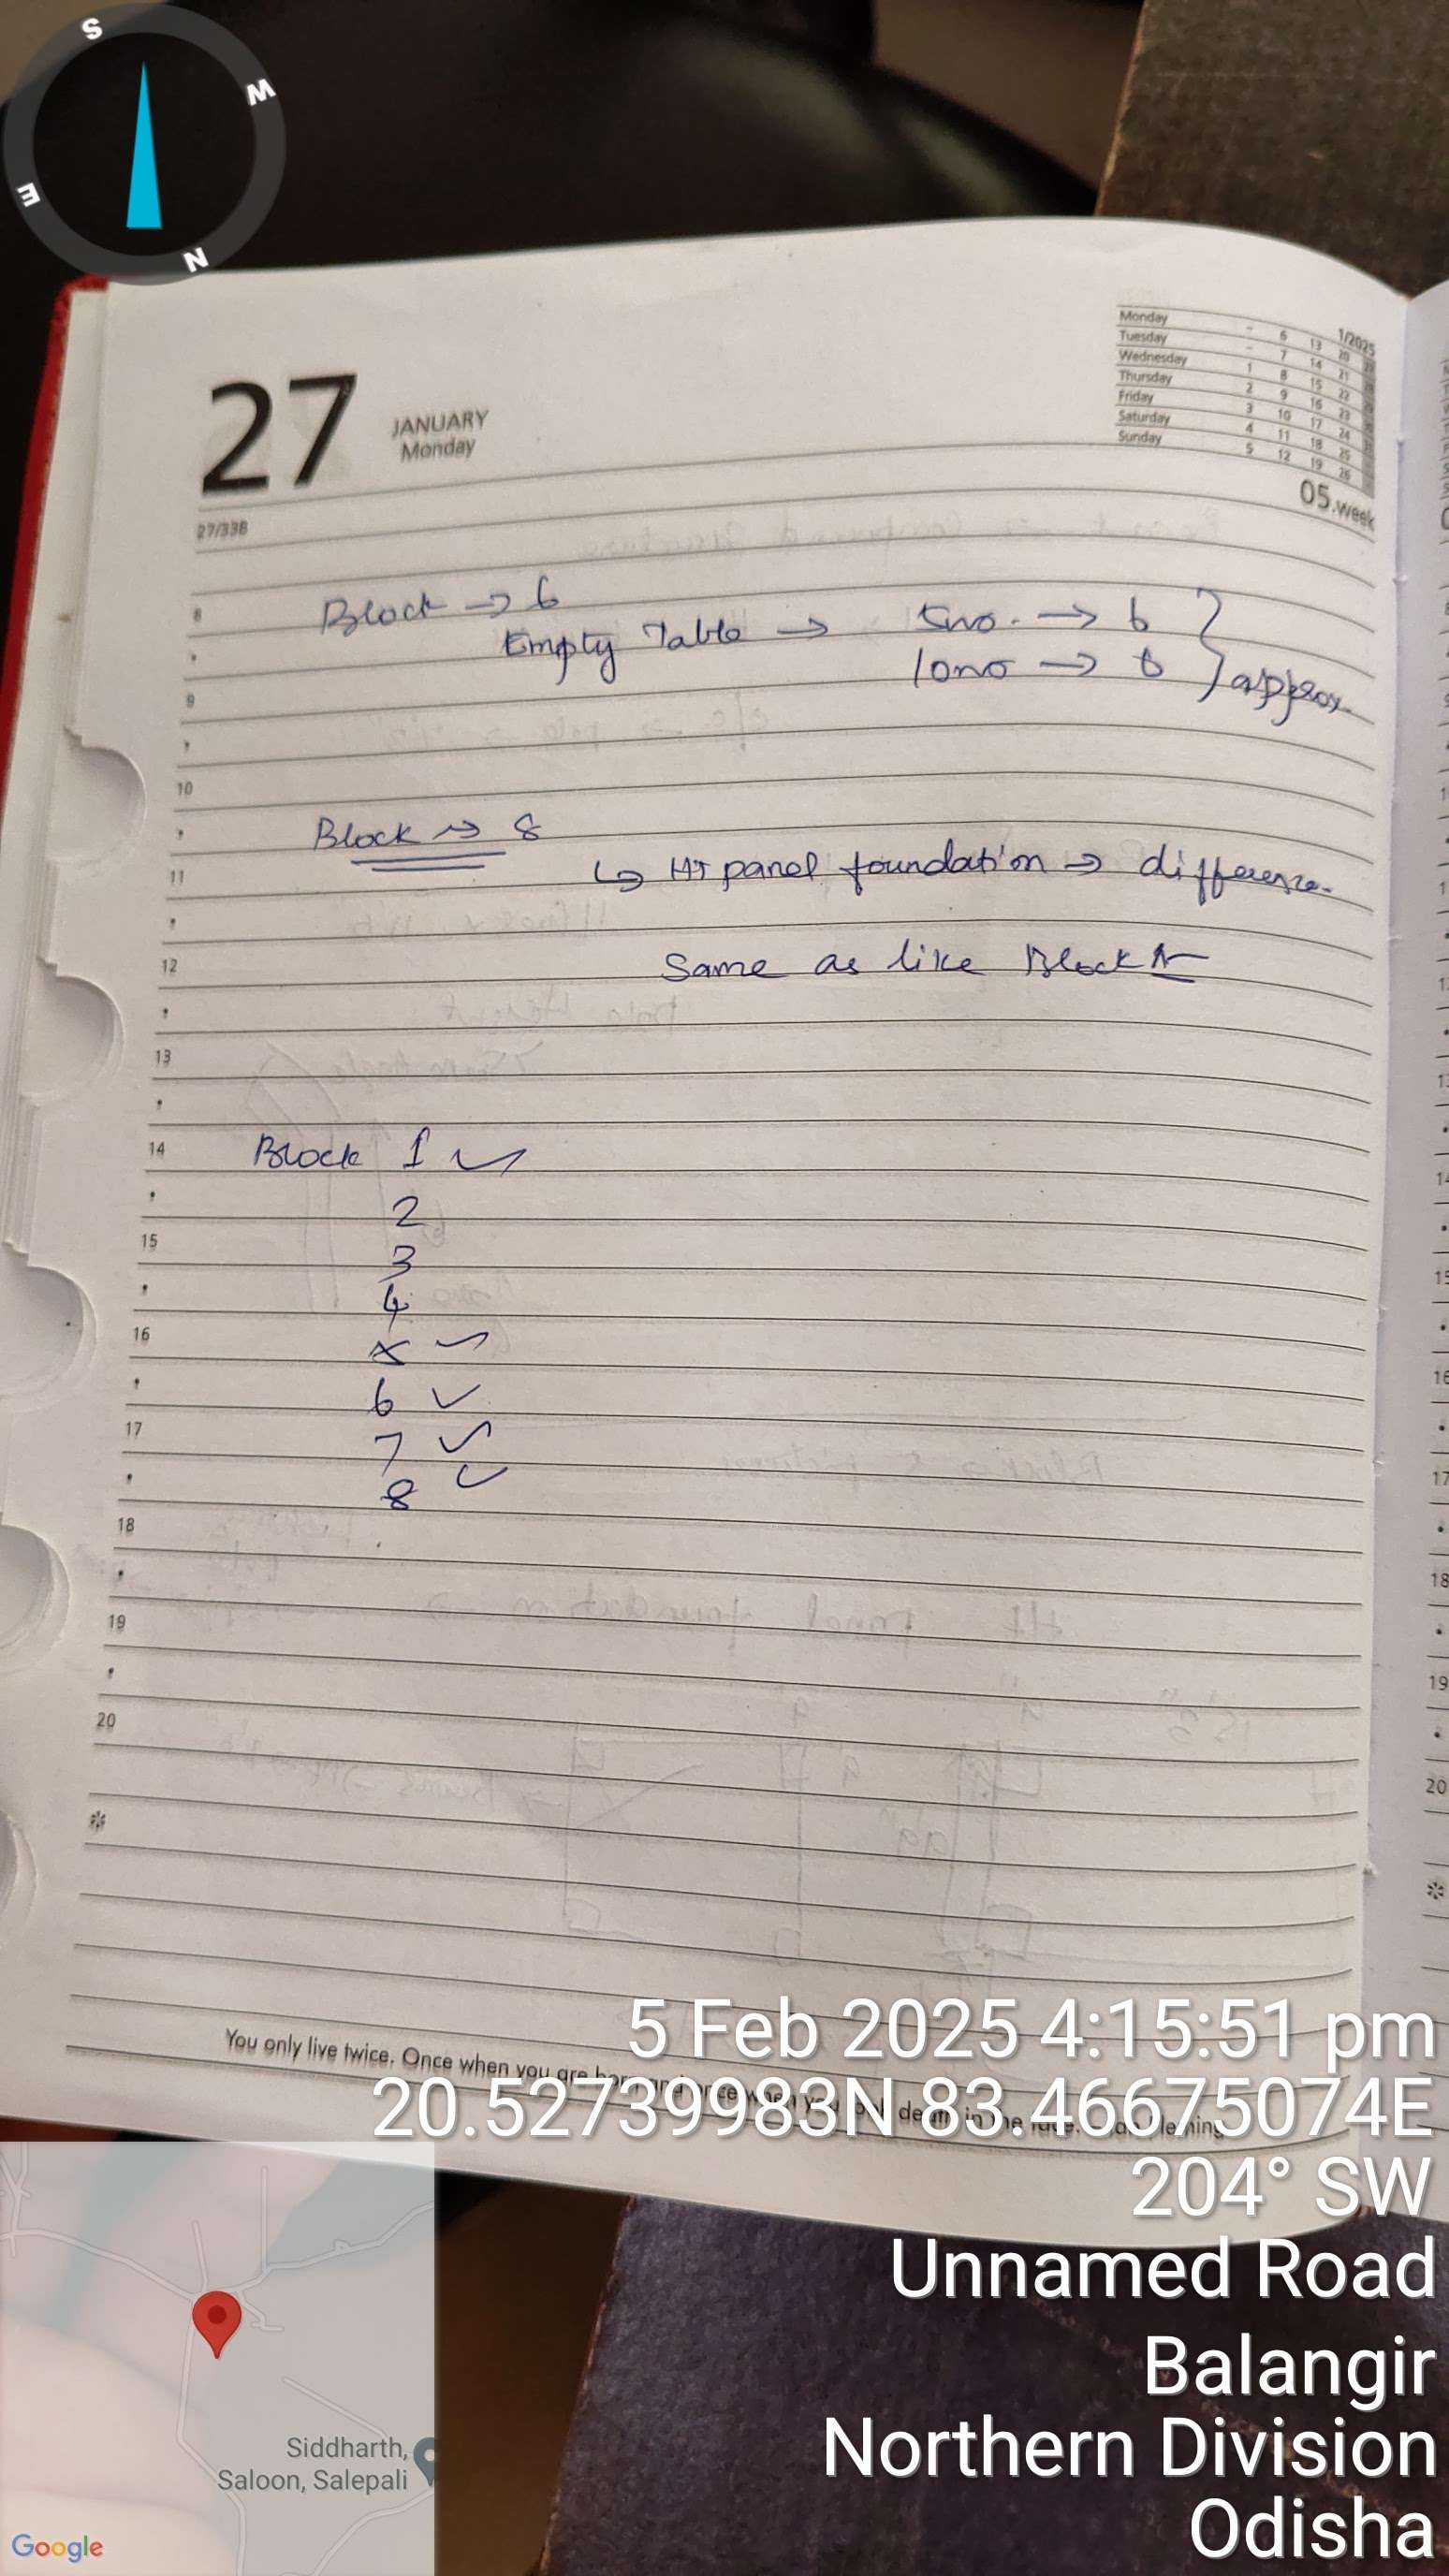 S
W
E
N
27
JANUARY
Monday
27/338
1/2025
Monday - 6 13 20
Tuesday - 7 14 21
Wednesday 1 8 15 22
Thursday 2 9 16 23
Friday 3 10 17 24
Saturday 4 11 18 25
Sunday 5 12 19 26
05.week
8
Block → 6
Empty Table → 5no. → 6
10no → 6 } approx.
9
10
Block → 8
11
↳ HT panel foundation → difference.
12
Same as like Block
13
14
Block 1 ✓
2
15
3
4
16
5 ✓
6 ✓
17
7 ✓
8 ✓
18
19
20
You only live twice. Once when you are born and once when you look death in the face. Fleming
5 Feb 2025 4:15:51 pm
20.52739983N 83.46675074E
204° SW
Unnamed Road
Balangir
Northern Division
Odisha
Siddharth,
Saloon, Salepali
Google